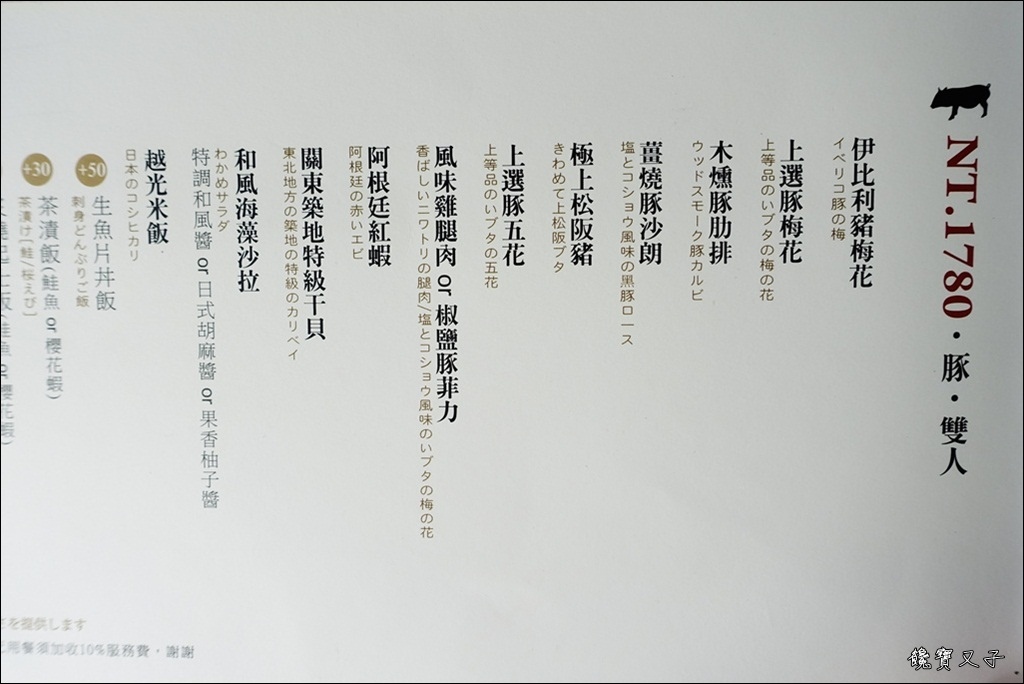 NT.1780・豚・雙人
伊比利豬梅花
イベリコ豚の梅
上選豚梅花
上等品のいブタの梅の花
木燻豚肋排
ウッドスモーク豚カルビ
薑燒豚沙朗
塩とコショウ風味の黒豚ロース
極上松阪豬
きわめて上松阪ブタ
上選豚五花
上等品のいブタの五花
風味雞腿肉 or 椒鹽豚菲力
香ばしいニワトリの腿肉/塩とコショウ風味のいブタの梅の花
阿根廷紅蝦
阿根廷の赤いエビ
關東築地特級干貝
東北地方の築地の特級のカリベイ
和風海藻沙拉
わかめサラダ
特調和風醬 or 日式胡麻醬 or 果香柚子醬
越光米飯
日本のコシヒカリ
+50 生魚片丼飯
刺身どんぶりご飯
+30 茶漬飯(鮭魚 or 櫻花蝦)
茶漬け[鮭/桜えび]
を提供します
用餐須加收10%服務費，謝謝
饞寶又子